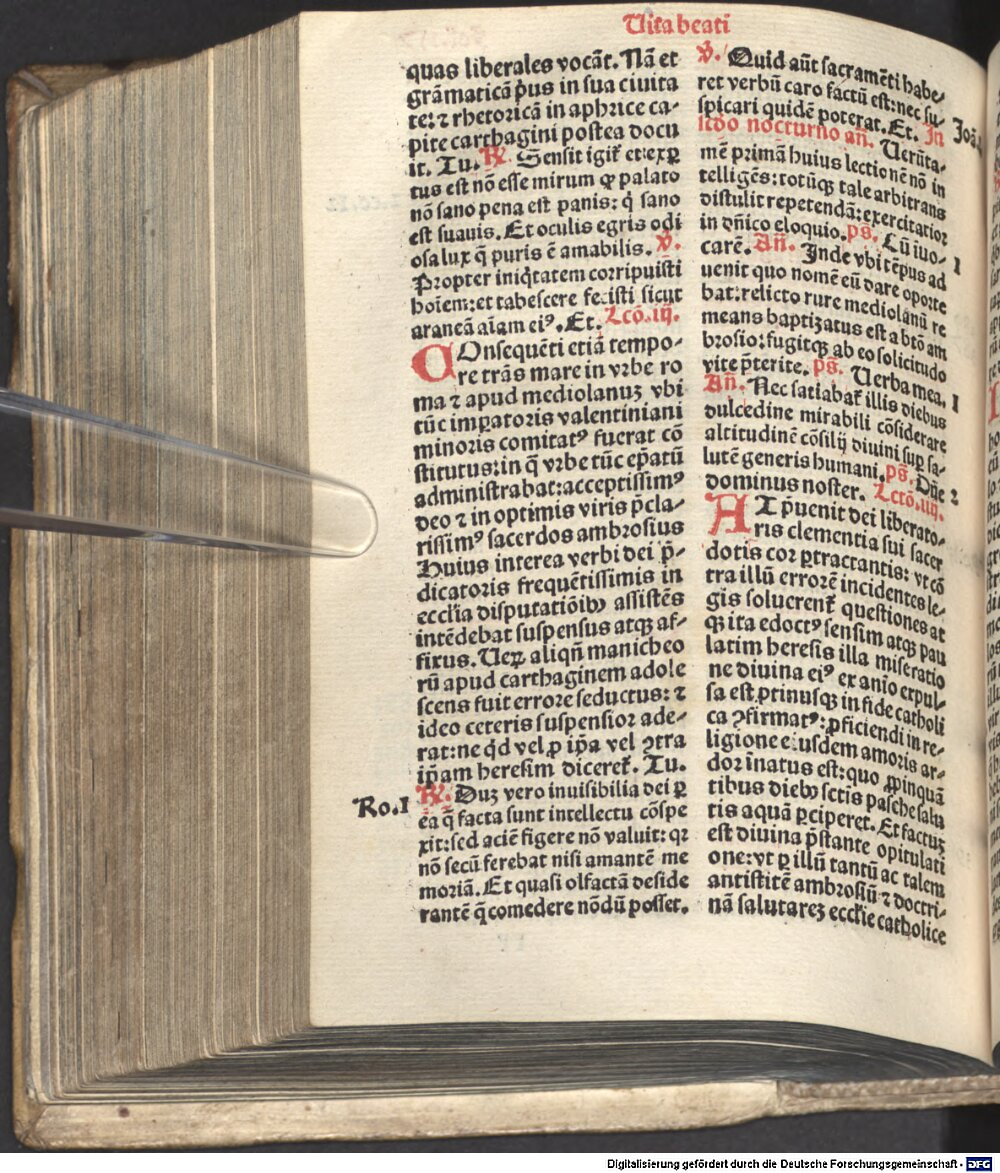 Uita beati
quas liberales vocāt. Nā et
grāmaticā p̄us in sua ciuita
te: ⁊ rhetoricā in aphrice ca-
pite carthagini postea docu
it. Tu. R̄. Sensit igit̄ et exꝑ
tus est nō esse mirum ꝙ palato
nō sano pena est panis: q̄ sano
est suauis. Et oculis egris odi
osa lux q̄ puris ē amabilis. V̄.
Propter iniq̄tatem corripuisti
hoīem: et tabescere fecisti sicut
araneā aīam eiꝰ. Et. Lcō. iij.
COnsequēti etiā tempo-
re trās mare in vrbe ro
ma ⁊ apud mediolanuꝫ vbi
tūc imꝑatoris valentiniani
minoris comitatꝰ fuerat cō
stitutus: in q̄ vrbe tūc ep̄atū
administrabat: acceptissimꝰ
deo ⁊ in optimis viris p̄cla-
rissimꝰ sacerdos ambrosius
Huius interea verbi dei p̄-
dicatoris frequētissimis in
ecclīa disputatiōibꝰ assistēs
intēdebat suspensus atqꝫ af-
fixus. Ueꝝ aliqn̄ manicheo
rū apud carthaginem adole
scens fuit errore seductus: ⁊
ideo ceteris suspensior ade-
rat: ne qd̄ vel ꝓ ip̄a vel ꝯtra
ip̄am heresim diceret̄. Tu.
Ro. I
R̄. Duꝫ vero inuisibilia dei ꝑ
ea q̄ facta sunt intellectu cōspe
xit: sed aciē figere nō valuit: qꝛ
nō secū ferebat nisi amantē me
moriā. Et quasi olfactā deside
rantē q̄ comedere nōdū posset.
V̄. Quid aūt sacramēti habe-
ret verbū caro factū est: nec su-
spicari quidē poterat. Et. In
Joā. I
ido nocturno an̄. Uerūta-
mē primā huius lectionē nō in
telligēs: totūqꝫ tale arbitrans
distulit repetendā: exercitatior
in dn̄ico eloquio. ps̄. Cū iuo-
I
carē. An̄. Inde vbi tēpus ad
uenit quo nomē eū dare oporte
bat: relicto rure mediolanū re
means baptiȝatus est a btō am
brosio: fugitqꝫ ab eo solicitudo
vite p̄terite. ps̄. Uerba mea.
I
An̄. Nec satiabat̄ illis diebus
dulcedine mirabili cōsiderare
altitudinē cōsilij diuini suꝑ sa-
lutē generis humani. ps̄. Dn̄e
2
dominus noster. Lctō. iiij.
AT p̄uenit dei liberato-
ris clementia sui sacer
dotis cor ꝑtractantis: vt cō
tra illū errorē incidentes le-
gis soluerent̄ questiones at
qꝫ ita edoctꝰ sensim atqꝫ pau
latim heresis illa miseratio
ne diuina eiꝰ ex anīo expul-
sa est ꝓtinusqꝫ in fide catholi
ca ꝯfirmatꝰ: ꝓficiendi in re-
ligione eiusdem amoris ar-
dor īnatus est: quo ꝓpinquā
tibus diebꝰ sctīs pasche salu
tis aquā ꝑciperet. Et factuꝫ
est diuina p̄stante opitulati
one: vt ꝑ illū tantū ac talem
antistitē ambrosiū ⁊ doctri-
nā salutareȝ ecclīe catholice
Digitalisierung gefördert durch die Deutsche Forschungsgemeinschaft - DFG